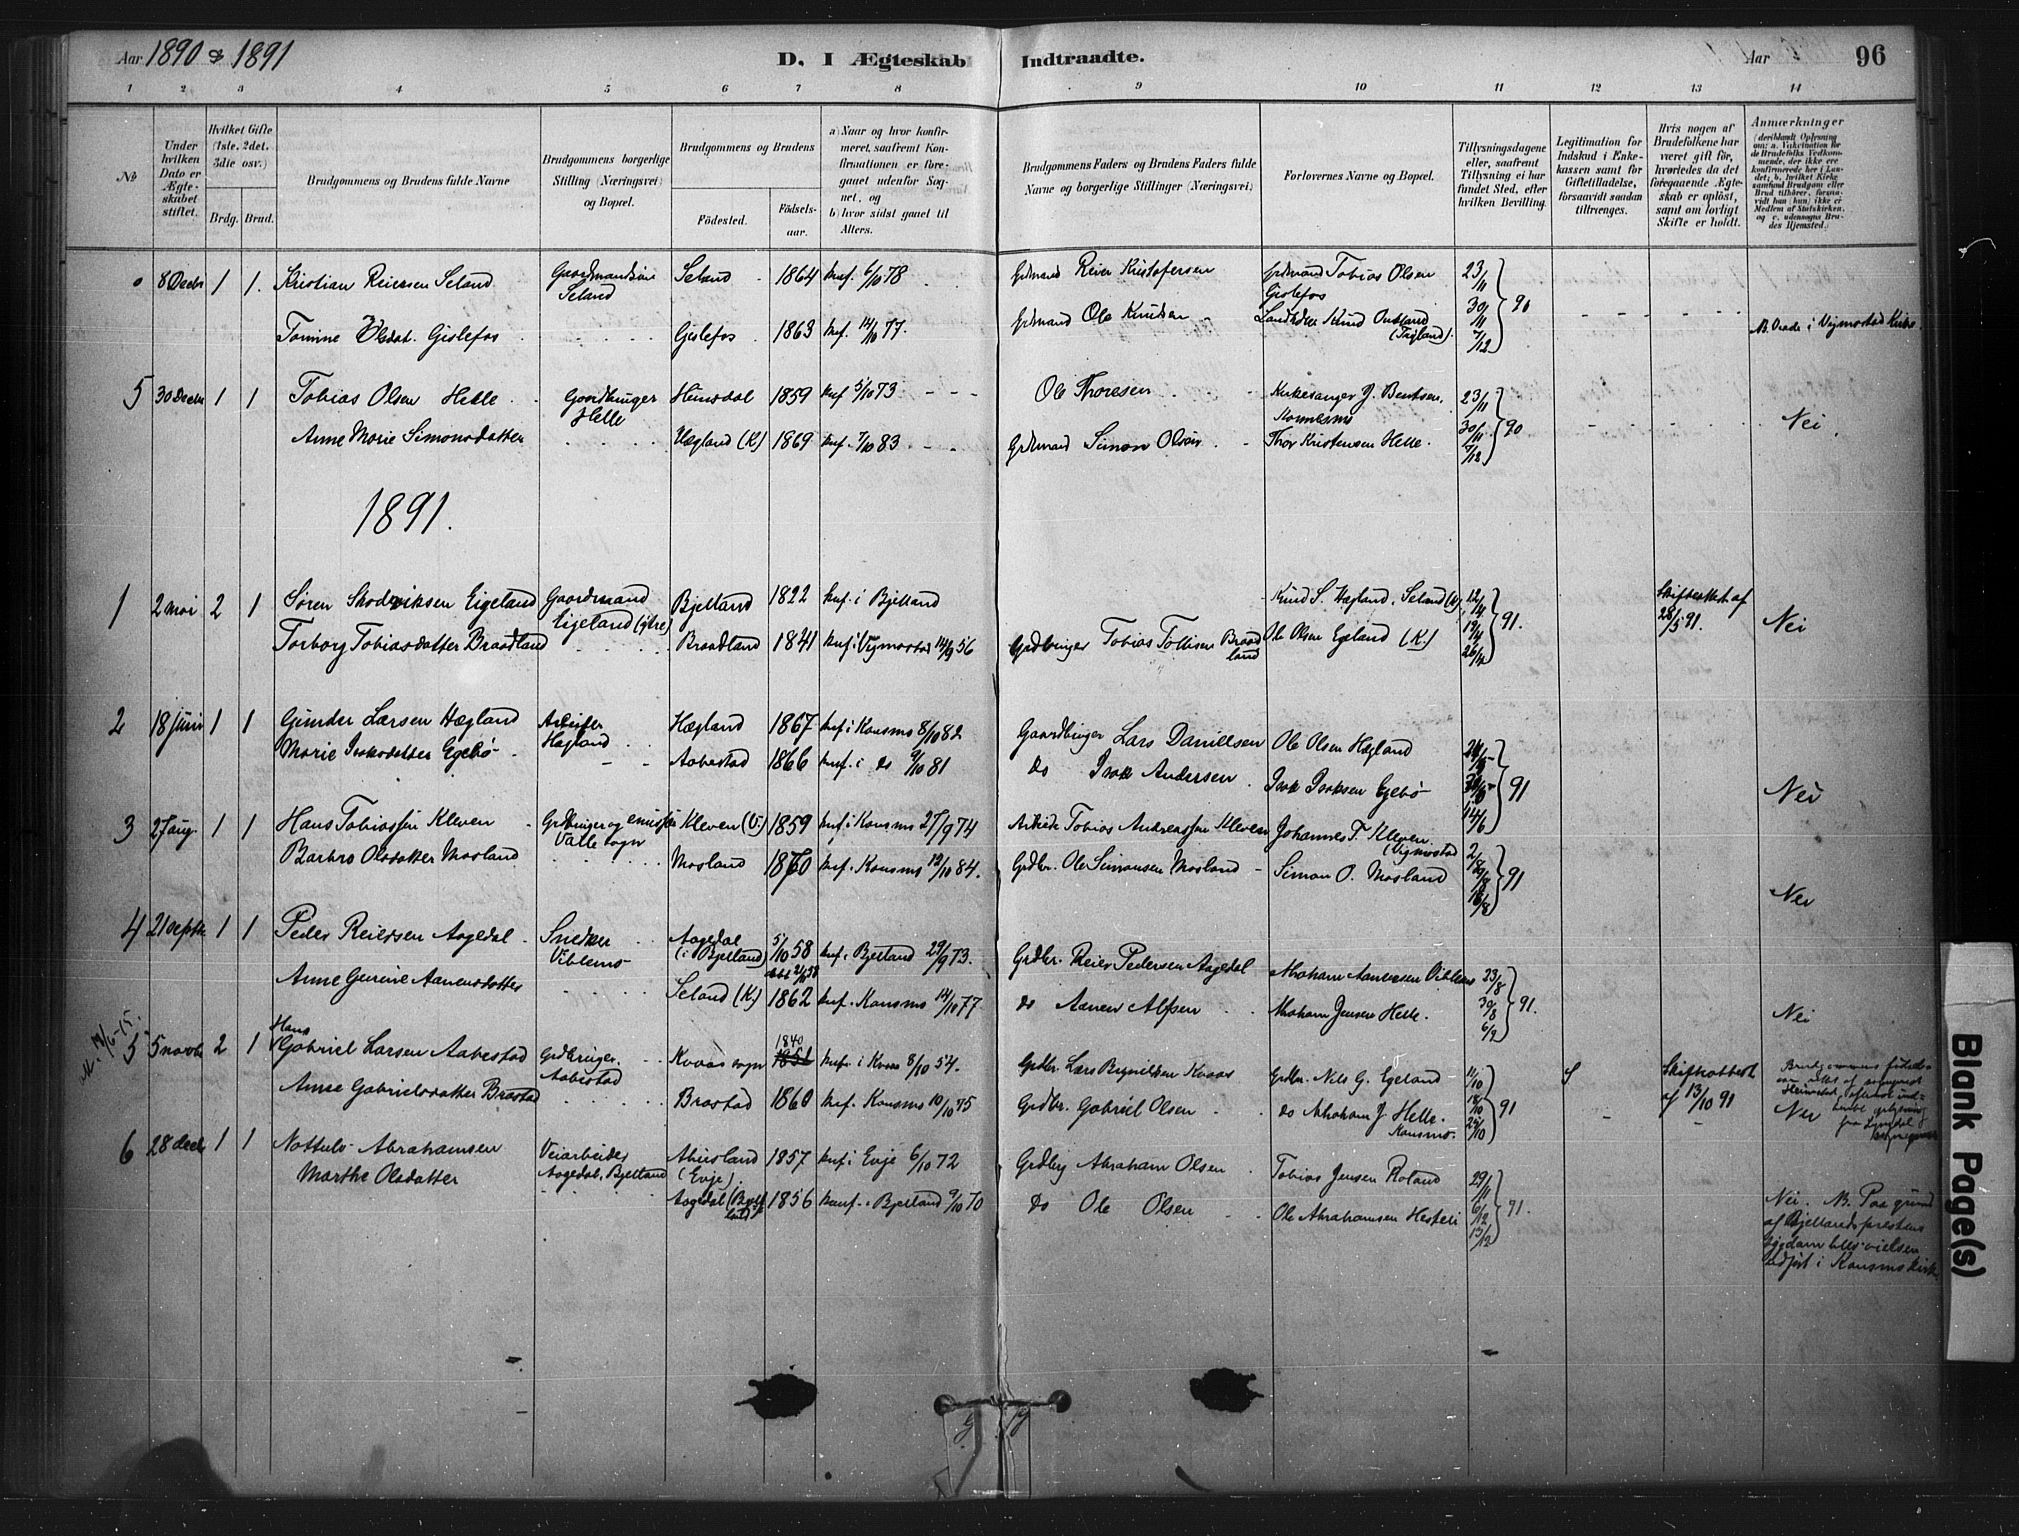 Aar 1890 & 1891
D. I Ægteskab Indtraadte.
Aar
96
1 2 3 4 5 6 7 8 9 10 11 12 13 14
No
Under hvilken Dato er Ægteskabet stiftet.
Hvilket Gifte (1ste. 2det. 3die osv.)
Brdg. Brud.
Brudgommens og Brudens fulde Navne
Brudgommens borgerlige Stilling (Næringsvei) og Bopæl.
Brudgommens og Brudens
Födested.
Födselsaar.
a) Naar og hvor konfirmeret, saafremt Konfirmationen er foregaaet udenfor Sognet, og
b) hvor sidst gaaet til Alters.
Brudgommens Faders og Brudens Faders fulde Navne og borgerlige Stillinger (Næringsvei)
Forlovernes Navne og Bopæl.
Tillysningsdagene eller, saafremt Tillysning ei har fundet Sted, efter hvilken Bevilling.
Legitimation for Indskud i Enkekassen samt for Giftetilladelse, forsaavidt saadan tiltrænges.
Hvis nogen af Brudefolkene har været gift för, hvorledes da det foregaaende Ægteskab er oplöst, samt om lovligt Skifte er holdt.
Anmærkninger
(deriblandt Oplysning om: a. Vakcination for de Brudefolks Vedkommende, der ikke ere konfirmerede her i Landet; b. hvilket Kirkesamfund Brudgom eller Brud tilhörer, forsaavidt han (hun) ikke er Medlem af Statskirken, og c. udensogns Brudes Hjemsted.
8 Decbr 1 1. Kristian Reiersen Seland Gaardmandssön Seland Seland 1864 knf. 6/10 78 Grdmand Reier Kristofersen Grdmand Tobias Olsen Gislefos 23/11 30/11 7/12 90
Tomine Olsdat. Gislefos Gislefos 1863 knf. 14/10 77. Grdmand Ole Knudsen Knud (Fægland). NB. Viede i Vigmostad Kirke.
5 30 Decbr 1 1 Tobias Olsen Helle Gaardbruger Helle Hunsdal 1859 knf 5/10 73 Ole Thoresen Kirkesanger J. Bentsen, 23/11 30/11 7/12 90 Nei.
Anne Marie Simonsdatter Hægland (K) 1869 knf. 7/10 83 Grdmand Simon Olsen Thor Kristensen Helle.
1891.
1 2 mai 2 1 Søren Eigeland Gaardmand Eigeland (ytre) Bjelland 1822 knf. i Bjelland Knud S. Hægland, Seland (K) 12/4 19/4 26/4 91. Skifteattest af 28/5 91. Nei
Torborg Tobiasdatter Braadland Braadland 1841 knf. i Vigmostad 14/9 56 Grdbruger Tobias Tollisen Braadland Ole Olsen Egeland (K)
2 18 juni 1 1 Gunder Larsen Hægland Arbeider Hægland Hægland 1867 knf. i Konsmo 8/10 82 Gaardbruger Lars Daniélsen Ole Olsen Hægland 24/5 31/5 14/6 91 Nei
Marie Isaksdatter Egebø Aabestad 1866 knf. i do 9/10 81 do Isak Andersen Isak Isaksen Egebø
3 27 aug. 1 1 Hans Tobiassen Kleven Grdbruger og Valle sogn Kleven (V.) 1859 knf. i Konsmo 27/9 74 Arbeider Tobias Andreassen Kleven Johannes T. Kleven (Vigmostad 2/8 9/8 16/8 91 Nei
Barbro Olsdatter Mosland Mosland 1860 knf. Konsmo 12/10 84. Grdbr. Ole Simonsen Mosland Simon O. Mosland
4 21 septbr 1 1 Peder Reiersen Aagedal Snedker Viblemo Aagedal (i Bjelland) 5/10 58 knf. i Bjelland 29/9 73. Grdbr. Reier Pedersen Aagedal Abraham Aanensen Viblemo 23/8 30/8 6/9 91. Nei
Anne Gurine Aanensdatter Seland (K.) 1862 knf. Konsmo 14/10 77. do Aanen Alfsen Abraham Jensen Helle.
5 5 novbr 2 1 Hans Gabriel Larsen Aabestad Grdbruger Aabestad Kvaas sogn 1840 knf. i Kvaas 8/10 54. Grdbr. Lars Kvaas Grdbr. Nils G. Egeland 11/10 18/10 25/10 91 Skifteattest af 13/10 91 Nei
Anne Gabrielsdatter Brastad Brastad 1860 knf. Konsmo 10/10 75 Grdbr. Gabriel Olsen do Abraham J. Helle. Konsmo.
6 28 decbr 1 1 Nottulv Abrahamsen Veiarbeider Aagedal, Bjelland (Evje) 1857 knf. i Evje 6/10 72 Grdbrg Abraham Olsen Tobias Jensen Roland 29/11 6/12 13/12 91.
Marthe Olsdatter Aagedal (Bjelland) 1856 konf. i Bjelland 9/10 70 do Ole Olsen Ole Abrahamsen Hesteli
Nei. NB. Paa grund af Bjellandsprestens sygdom blev vielsen udført i Konsmo kirke
Blank Page(s)